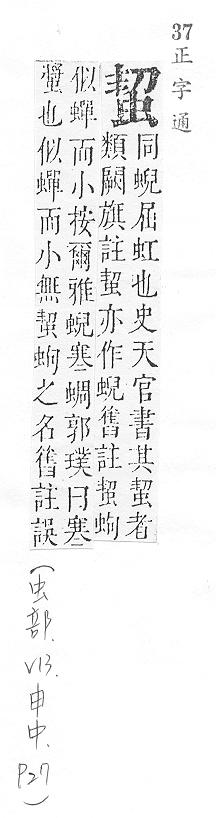 37正字通
蛪同蜺屈虹也史天官書其蛪者
類闕旗註蛪亦作蜺舊註蛪蚼
似蟬而小按爾雅蜺寒蜩郭璞曰寒
螿也似蟬而小無蛪蚼之名舊註誤
(虫部.V13.申中.P27)